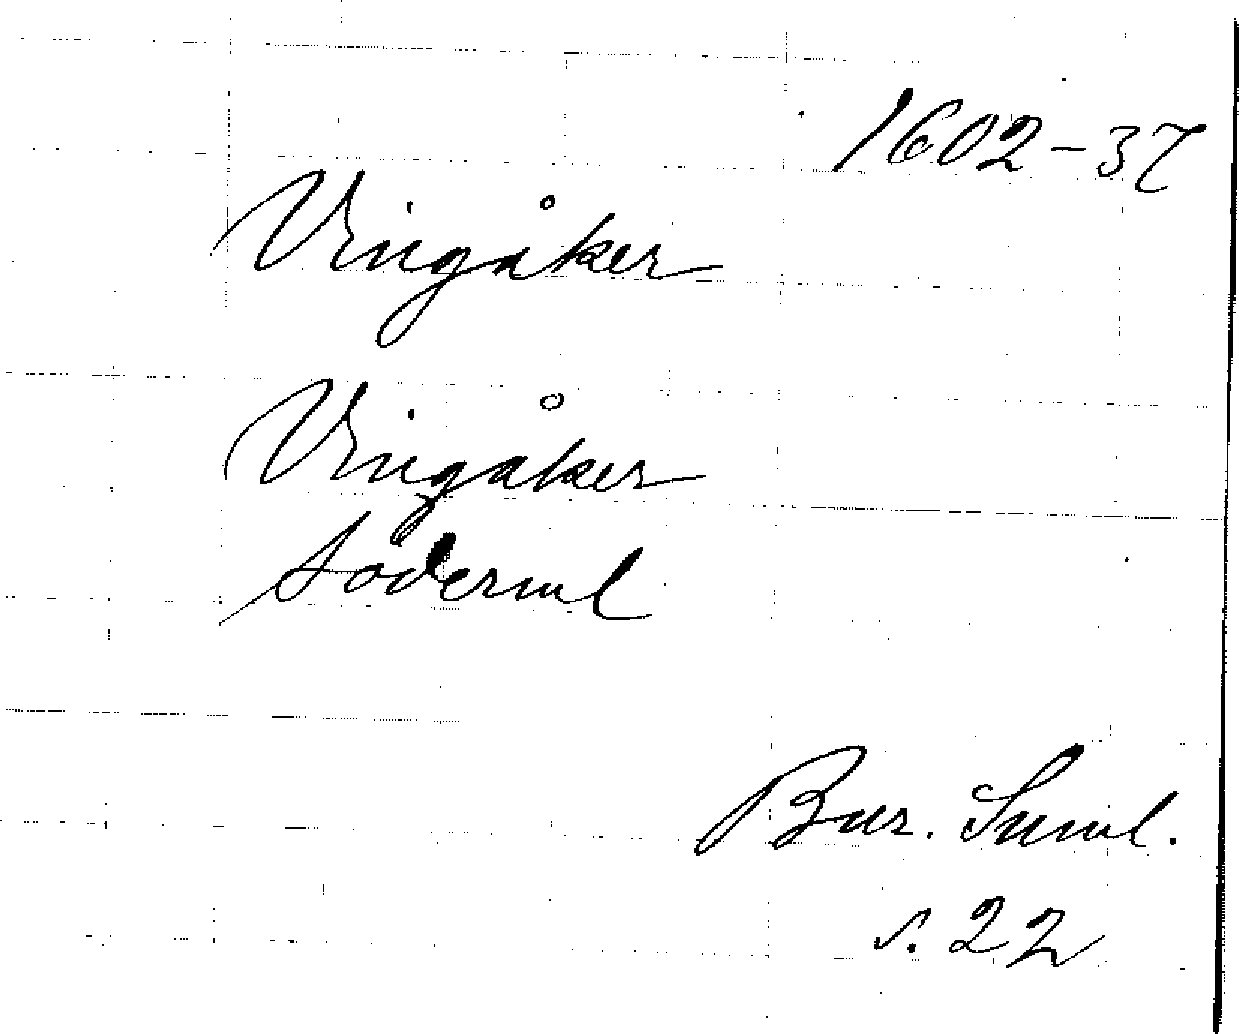 1602-37
Vingåker
Vingåker
Söderml
Bur. Suml.
s. 22